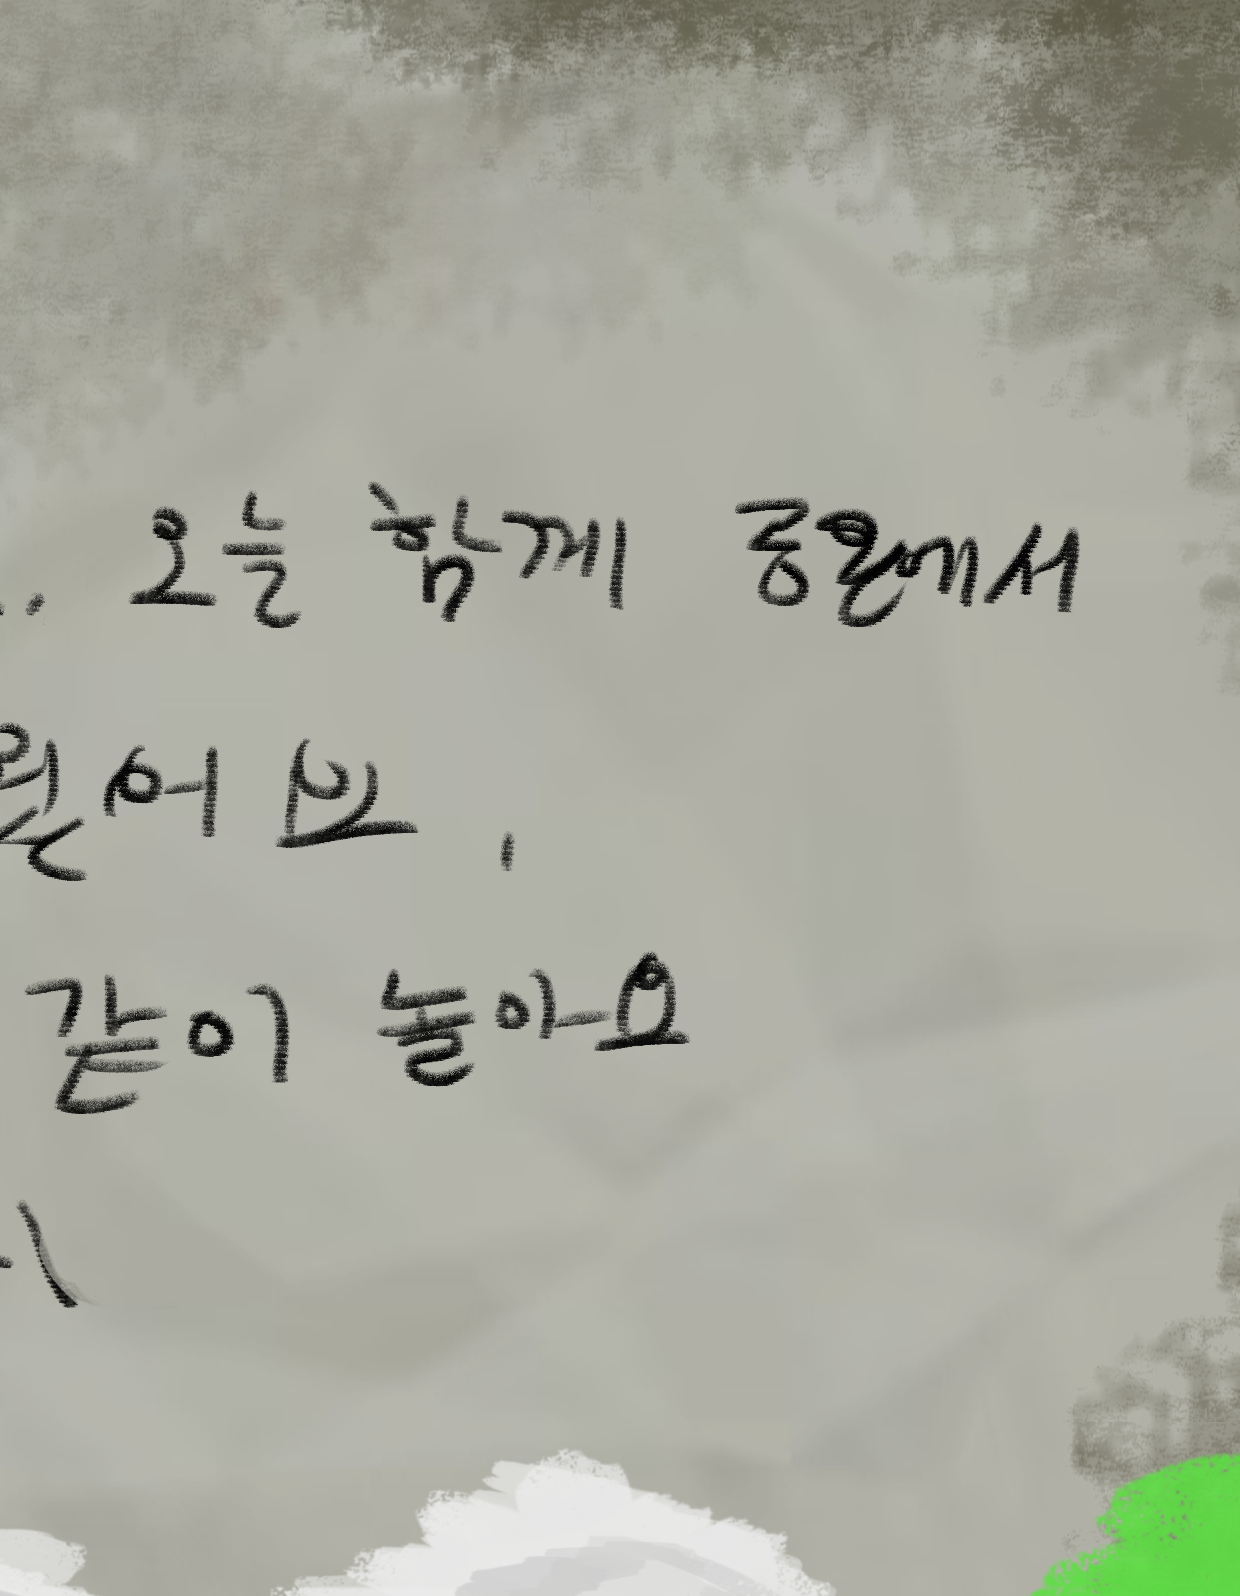 . 오늘 함께 공원에서
어요.
같이 놀아요